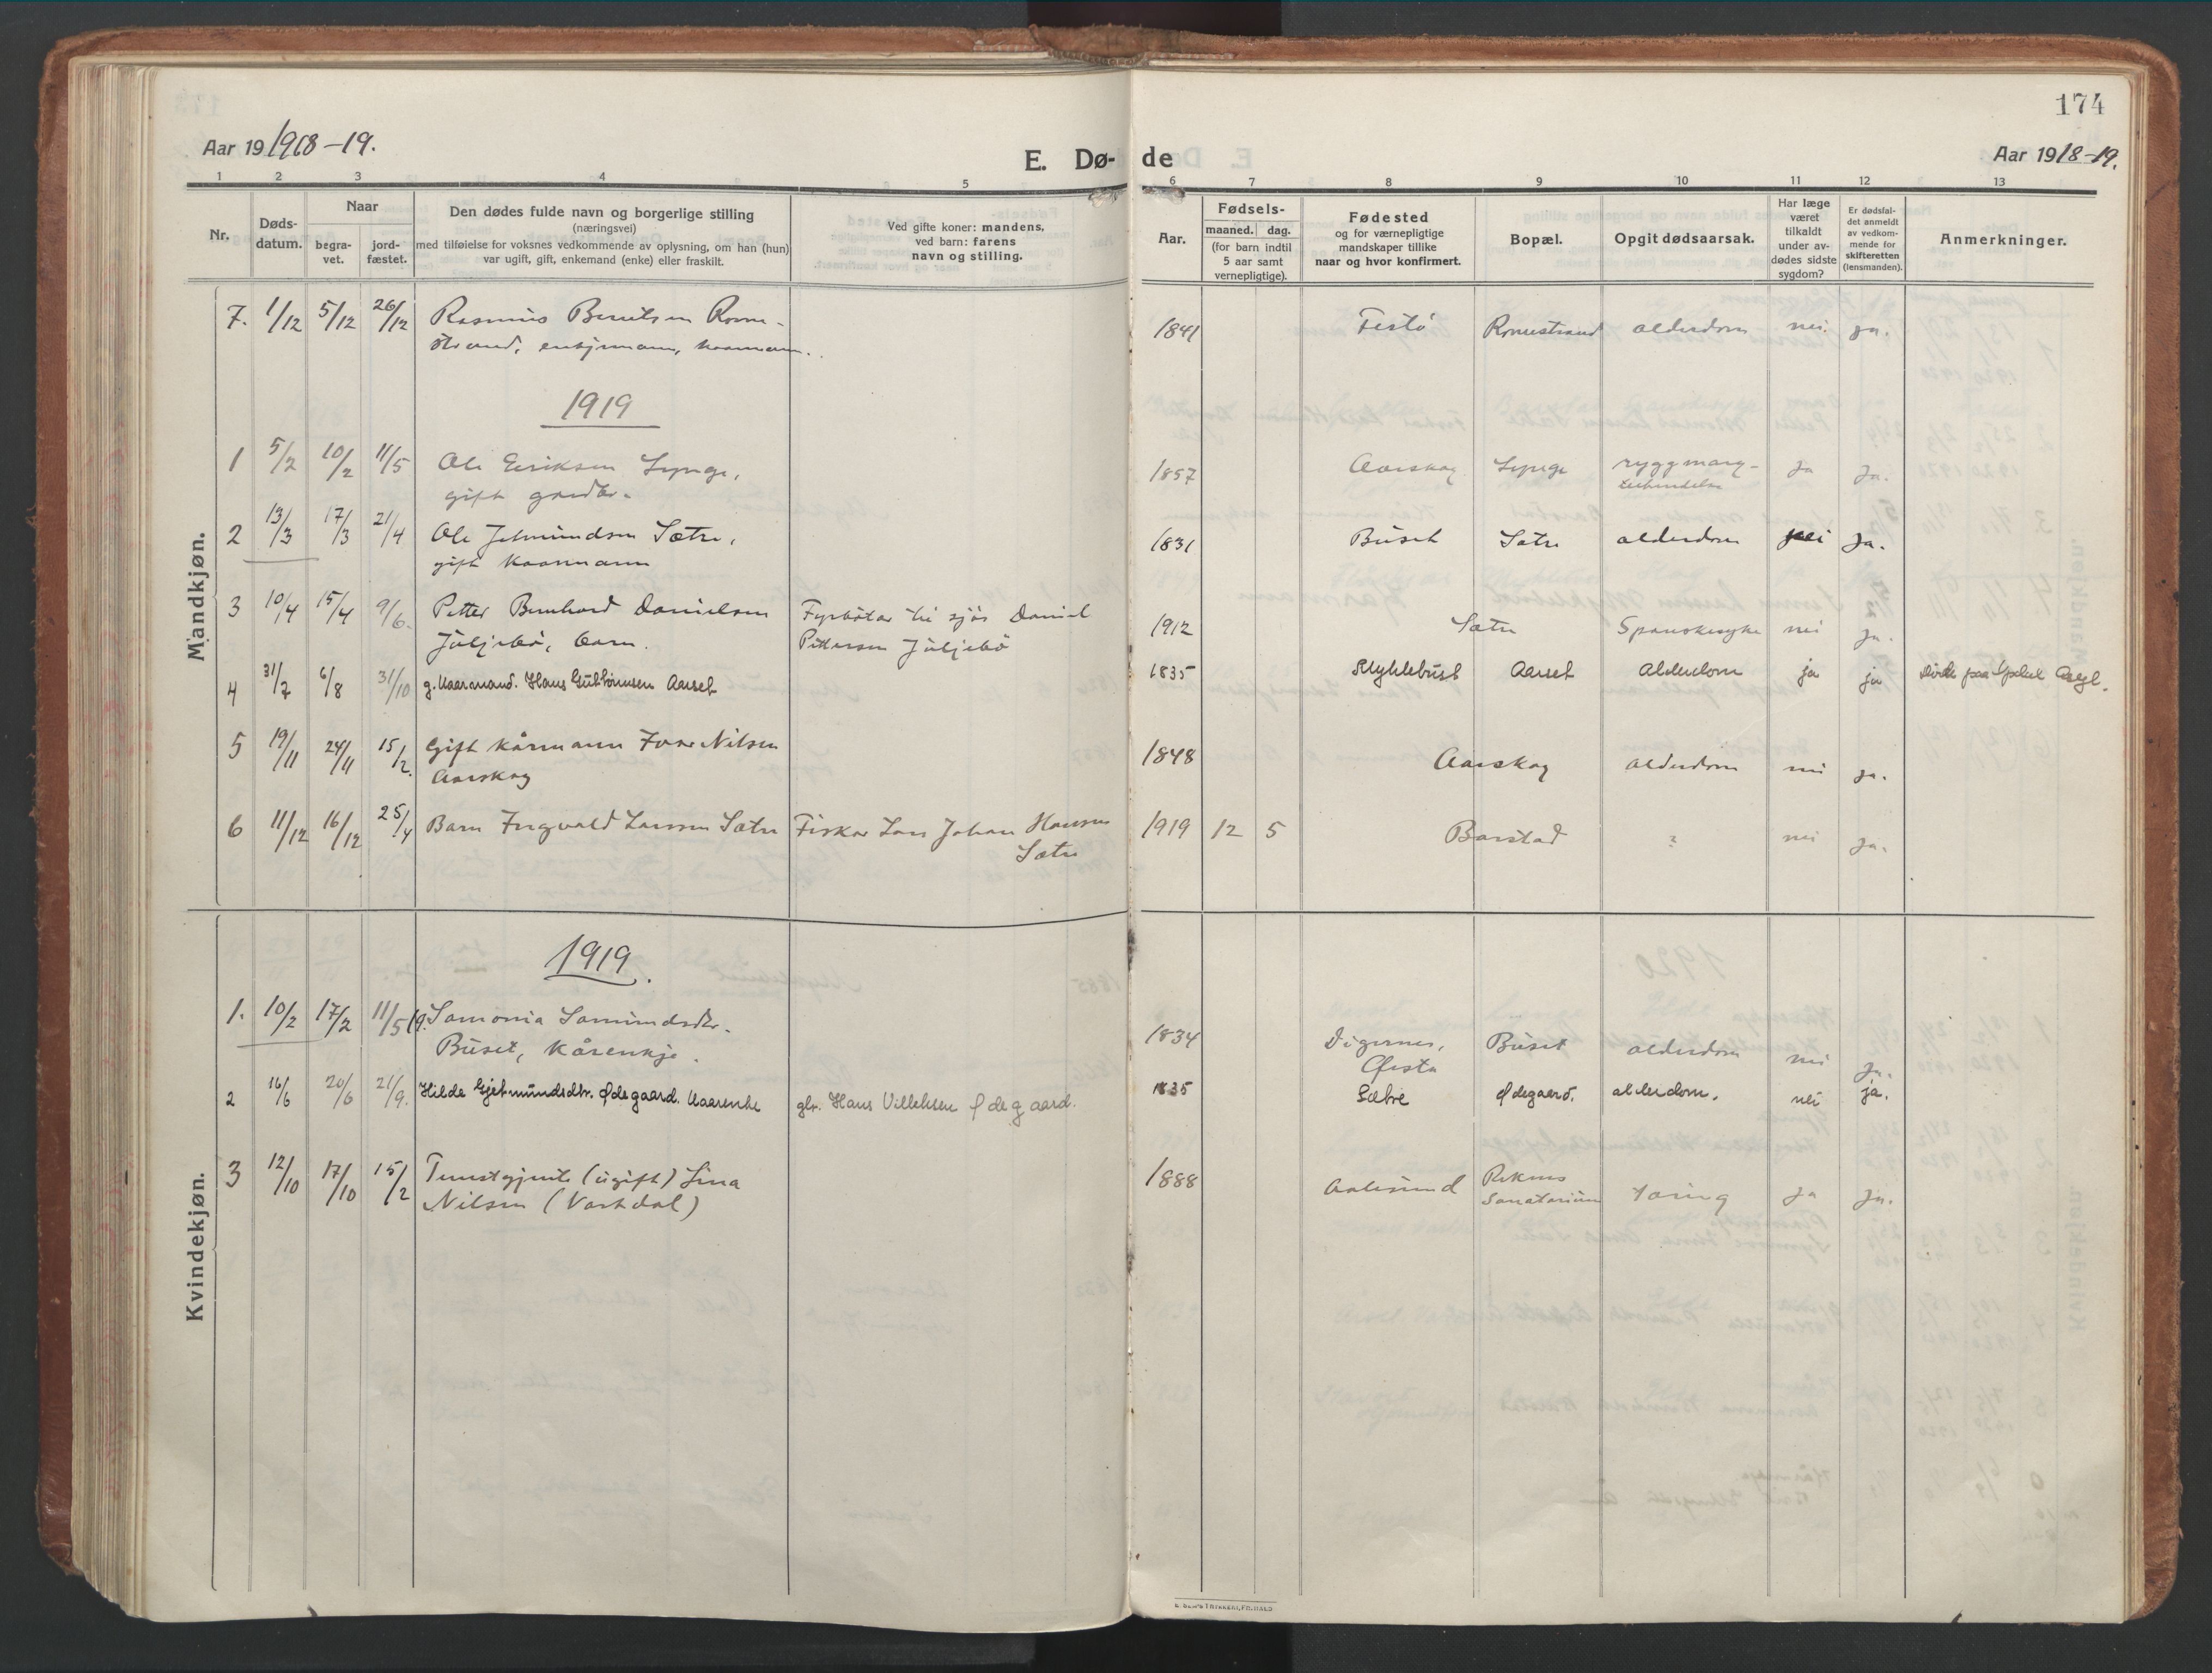 174
Aar 19 1918-19.
E. Dø-
de
Aar 1918-19.
1 2 3 4 5 6 7 8 9 10 11 12 13
Nr.
Døds-
datum.
Naar
begra-
vet.
jord-
fæstet.
Den dødes fulde navn og borgerlige stilling
(næringsvei)
med tilføielse for voksnes vedkommende av oplysning, om han (hun)
var ugift, gift, enkemand (enke) eller fraskilt.
Ved gifte koner: mandens,
ved barn: farens
navn og stilling.
Aar.
Fødsels-
maaned. dag.
(for barn indtil
5 aar samt
vernepligtige).
Fødested
og for værnepligtige
mandskaper tillike
naar og hvor konfirmert.
Bopæl.
Opgit dødsaarsak.
Har læge
været
tilkaldt
under av-
dødes sidste
sygdom?
Er dødsfal-
det anmeldt
av vedkom-
mende for
skifteretten
(lensmanden).
Anmerkninger.
Mandkjøn.
7. 1/12 5/12 26/12 Rasmus Berntsen Rome- 1841 Festö Romestrand alderdom nei. ja.
strand, enkjemann, kaarmann.
1919
1 5/2 10/2 11/5 Ole Eeriksen Lynge, 1857 Aarskog Lynge ryggmarg- Ja Ja.
gift gardbr.
2 13/3 17/3 21/4 Ole Jetmundsen Sætre, 1831 Büset Sætre alderdom nei Ja.
gift kaarmann
3 10/4 15/4 9/6. Petter Bernhard Danielsen Fyrbötar til sjös Daniel 1912 Sætre Spanskesyke nei ja.
Júljebö, barn. Pettersen Júljebö
4 31/7 6/8 31/10 g. Kaarmand. Hans Guttormsen Aarset 1835 Myklebust Aarset Alderdom ja ja Döde paa Opdal Asyl.
5 19/11 24/11 15/2. Gift kårmann Ivar Nilsen 1848 Aarskog alderdom nei ja.
Aarskog
6 11/12 16/12 25/4 Barn Ingvald Larssen Sætre Fiskar Lars Johan Hansen 1919 12 5 Barstad ? nei ja.
Sætre
Kvindekjøn.
1919.
1. 10/2 17/2 11/5 19. Samonia Samundsdtr. 1834 Digernes, Büset alderdom nei ja.
Büset, kårenkje. Ørsta
2 16/6 20/6 21/9. Hilde Gjetmundsdtr. Ødegaard. Kaarenke gbr. Hans Villeksen Ødegaard. 1835 Sætre Ødegaard. alderdom. nei ja.
3 12/10 17/10 15/2 Tenestgjente (ugift) Lina 1888 Aalesund Reknes Tæring Ja Ja.
Nilsen (Vartdal) Sanatorium